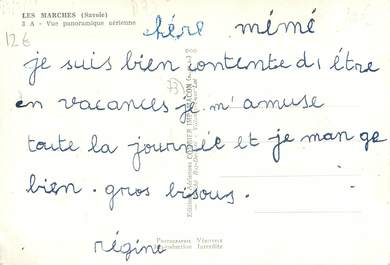 LES MARCHES (Savoie)
3 A - Vue panoramique aérienne
12€
chére mémé
je suis bien contente d'être
en vacances je m'amuse
toute la journée et je mange
bien. gros bisous.
régine
73
PHOTOGRAPHIE VÉRITABLE
Reproduction Interdite